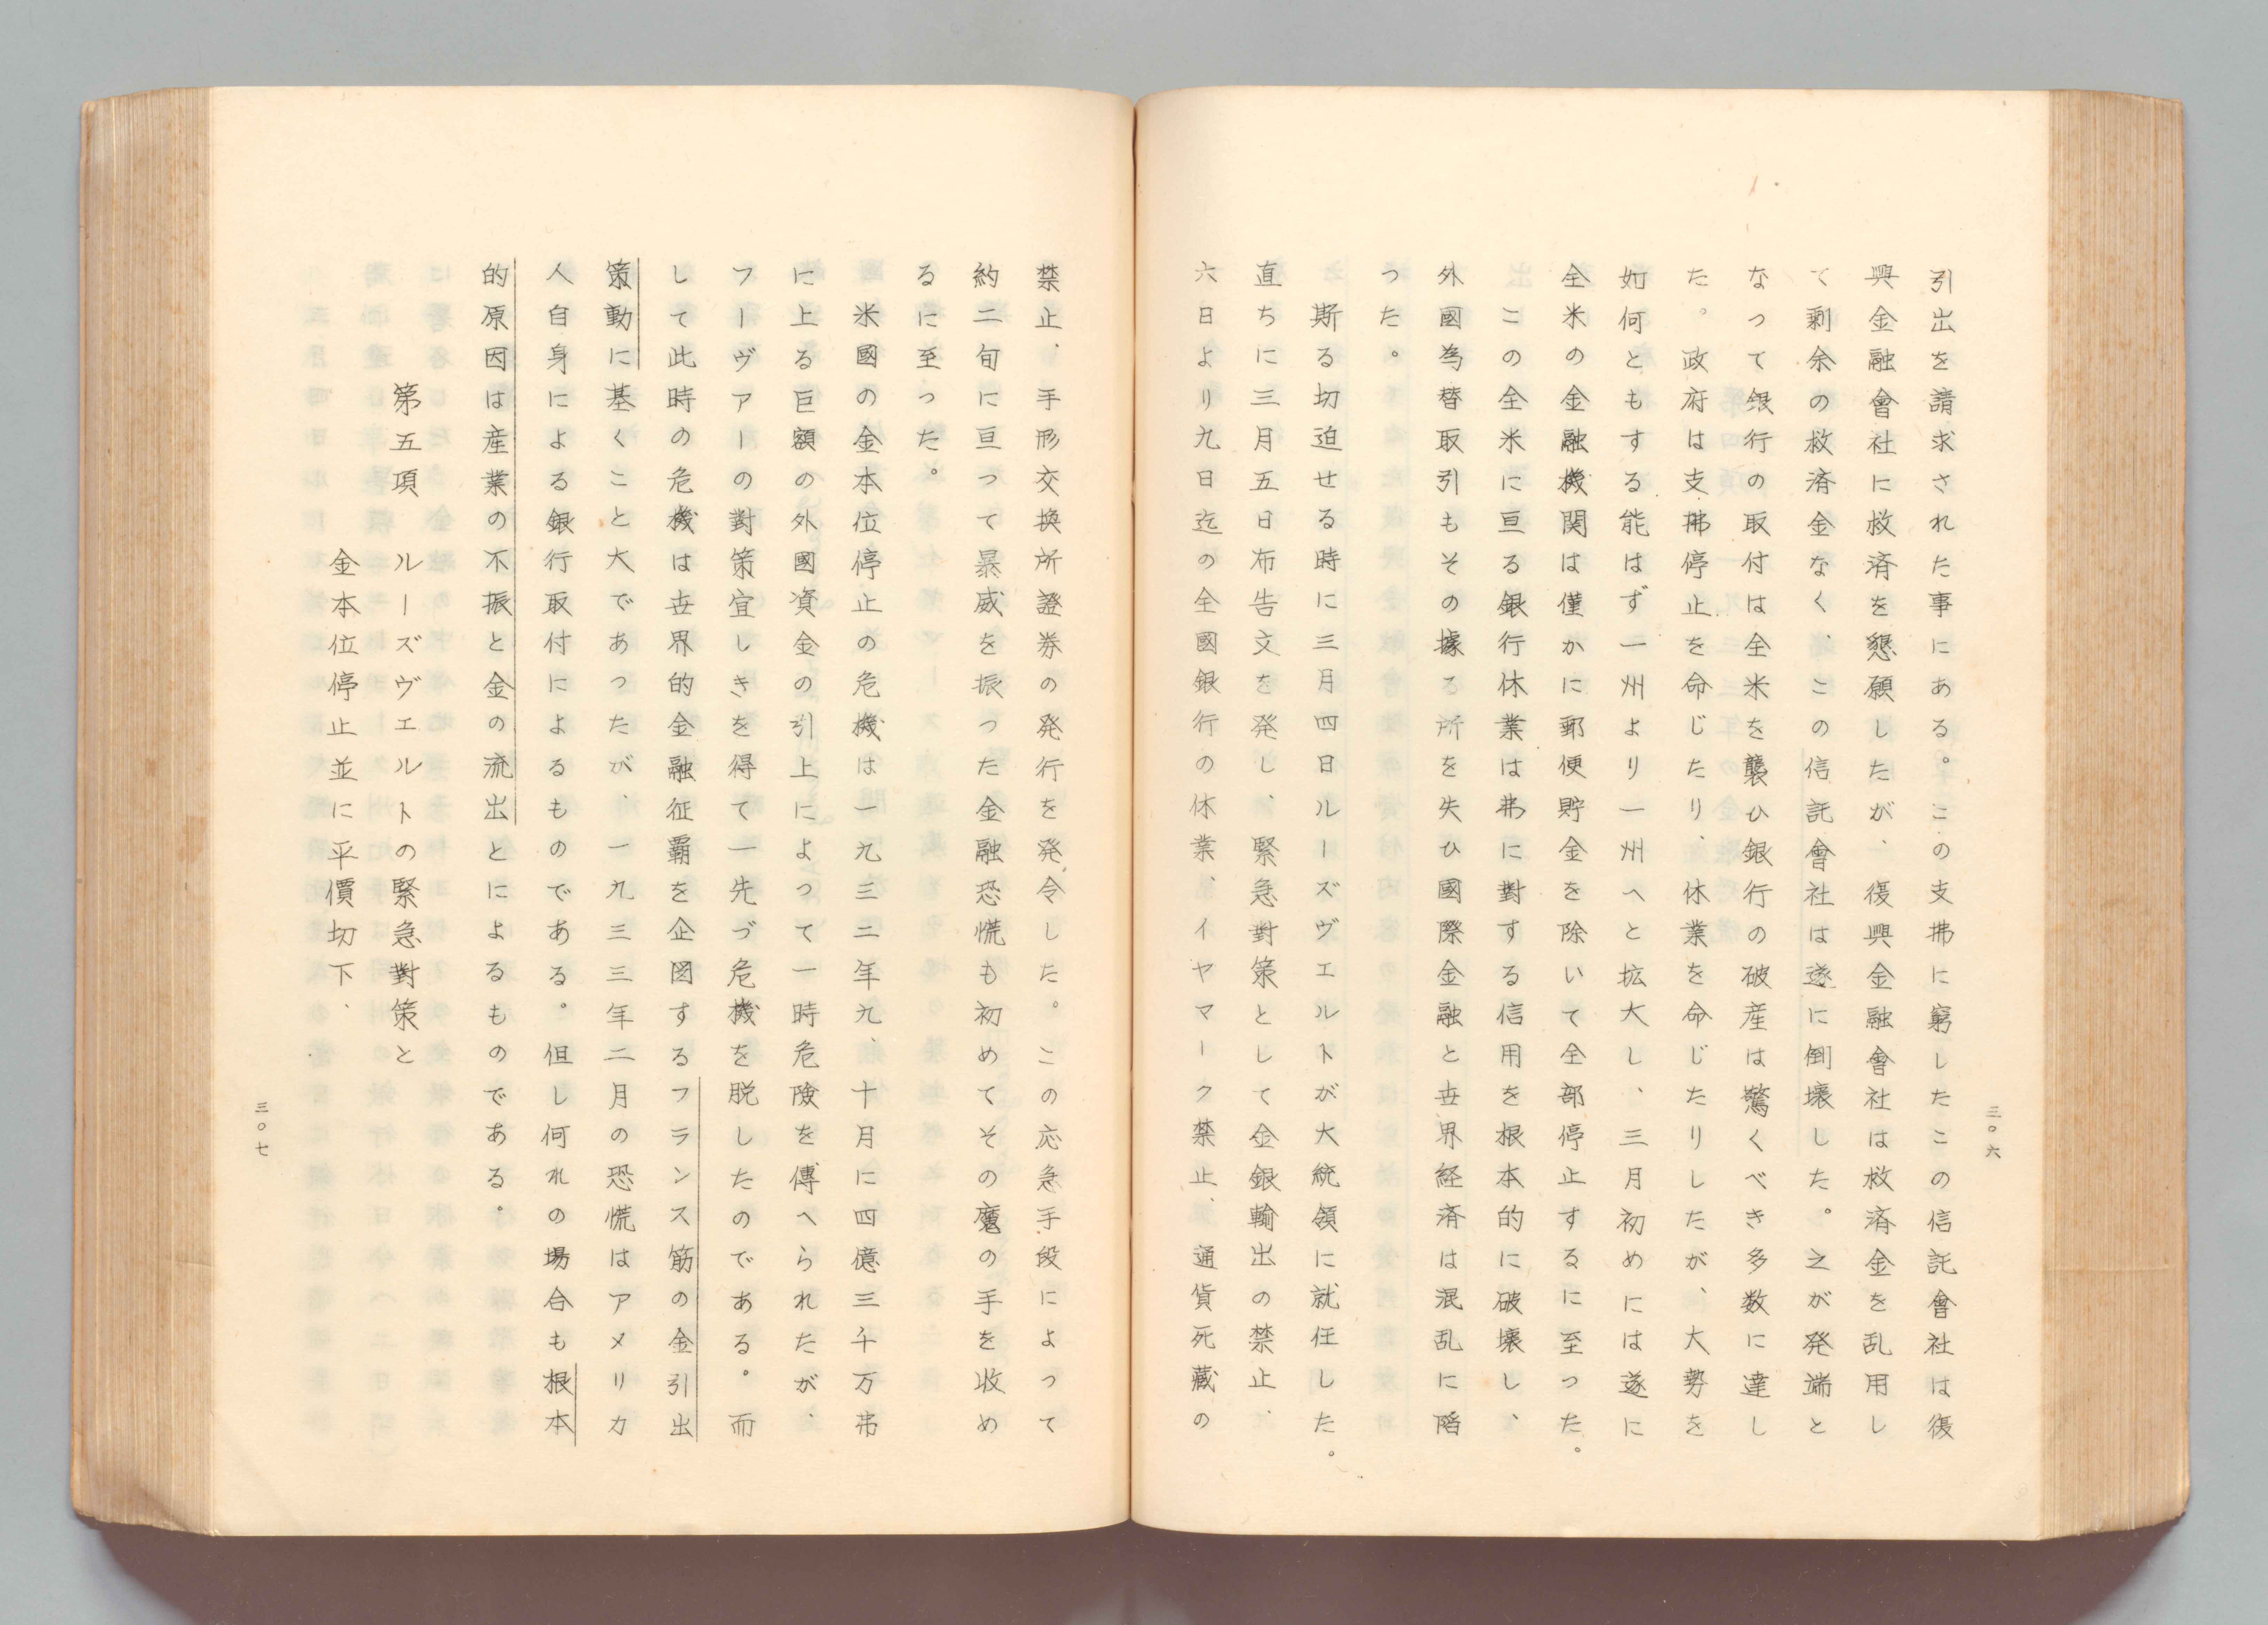 引出を請求された事にある。この支拂に窮したこの信託會社は復
興金融會社に救済を懇願したが、復興金融會社は救済金を乱用し
て剰余の救済金なく、この信託會社は遂に倒壊した。之が発端と
なって銀行の取付は全米を襲ひ銀行の破産は驚くべき多数に達し
た。政府は支拂停止を命じたり、休業を命じたりしたが、大勢を
如何ともする能はず一州より一州へと拡大し、三月初めには遂に
全米の金融機関は僅かに郵便貯金を除いて全部停止するに至った。
この全米に亘る銀行休業は弗に對する信用を根本的に破壊し、
外國為替取引もその據る所を失ひ國際金融と世界経済は混乱に陷
った。
斯る切迫せる時に三月四日ルーズヴェルトが大統領に就任した。
直ちに三月五日布告文を発し、緊急對策として金銀輸出の禁止、
六日より九日迄の全國銀行の休業、イヤマーク禁止、通貨死藏の
三〇六
禁止、手形交換所證券の発行を発令した。この応急手段によって
約二旬に亘って暴威を振った金融恐慌も初めてその魔の手を收め
るに至った。
米國の金本位停止の危機は一九三二年九、十月に四億三千万弗
に上る巨額の外國資金の引上によって一時危険を傳へられたが、
フーヴァーの對策宜しきを得て一先づ危機を脱したのである。而
して此時の危機は世界的金融征覇を企図するフランス筋の金引出
策動に基くこと大であったが、一九三三年二月の恐慌はアメリカ
人自身による銀行取付によるものである。但し何れの場合も根本
的原因は産業の不振と金の流出とによるものである。
第五項　ルーズヴェルトの緊急對策と
金本位停止並に平價切下、
三〇七